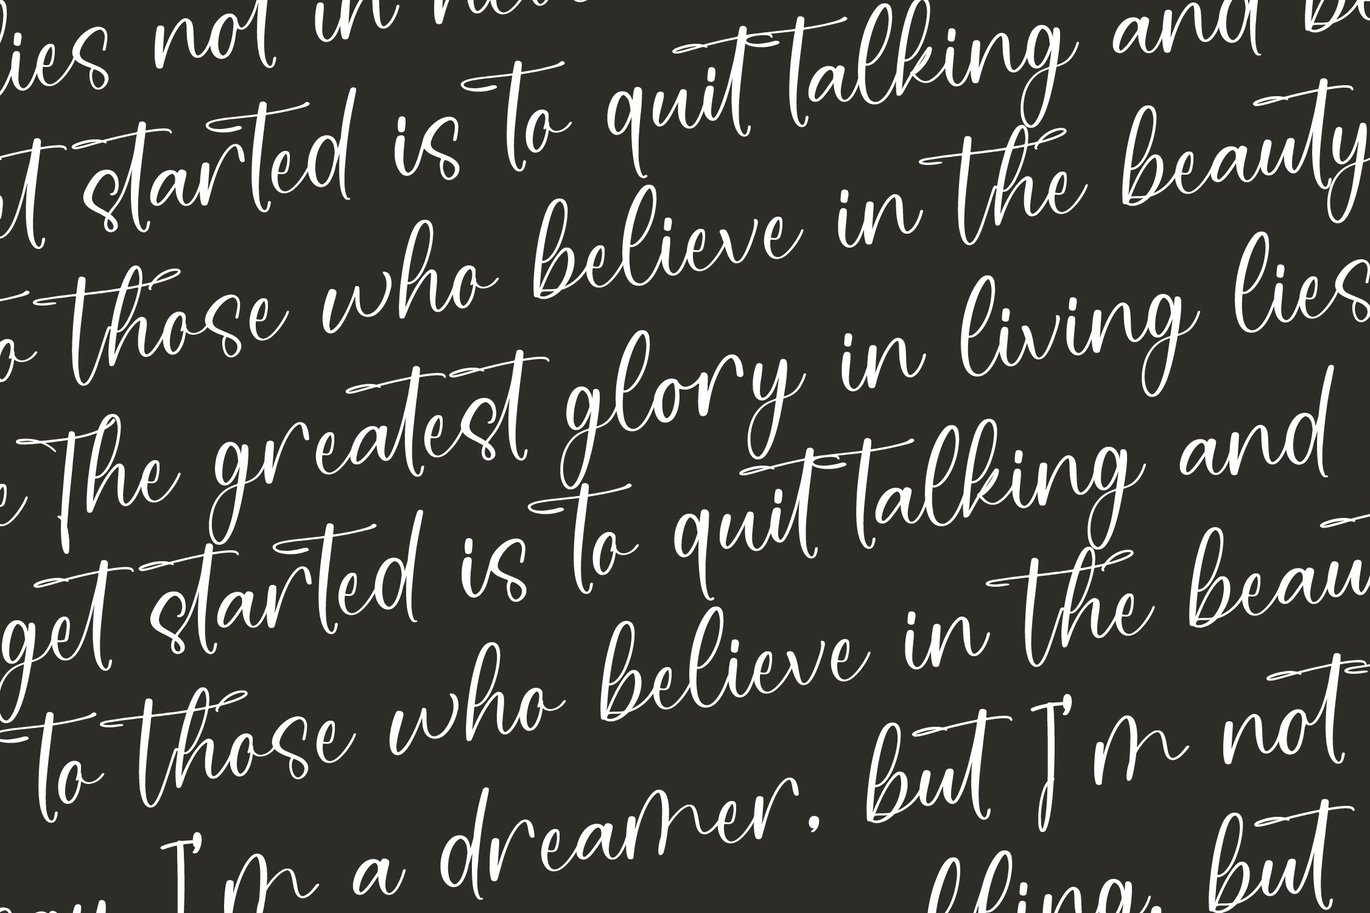 lies not in
get started is to quit talking and
to those who believe in the beauty
The greatest glory in living lies
get started is to quit talking and
to those who believe in the beau
I'm a dreamer, but I'm not
but